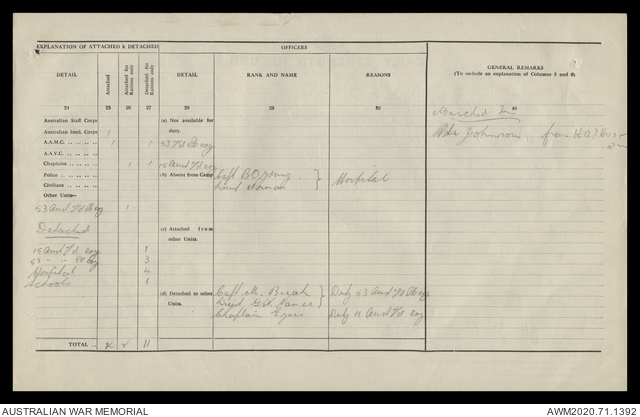 EXPLANATION OF ATTACHED & DETACHED
OFFICERS
GENERAL REMARKS
(To include an explanation of Columns 5 and 8)
DETAIL
Attached
Attached for Rations only
Detached for Rations only
DETAIL
RANK AND NAME
REASONS
24
25
26
27
28
29
30
31
Marched In
Pte Johnson from
Australian Staff Corps
Australian Instl. Corps 1
A.A.M.C. 1 1
A.A.V.C.
Chaplains 1 1
Police
Civilians
Other Units—
53 Aust Fd Pk coy 1
Detached
15 Aust Fd coy 1
53 " " Pk coy 3
Hospital 4
Schools 1
(a) Not available for duty.
53 Fd Pk coy
15 Aust Fd coy
(b) Absent from Camp
Capt B.O. Young
Lieut Norman
Hospital
(c) Attached from other Units.
(d) Detached to other Units.
Capt
Lieut
Duty 53 Aust Fd Pk coy
Chaplain
Duty 15 Aust Fd coy
TOTAL 2 11
AUSTRALIAN WAR MEMORIAL
AWM2020.71.1392